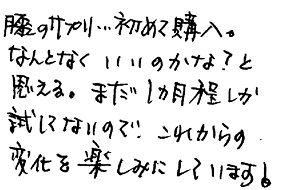 膝のサプリ…初めて購入。
なんとなく いいのかな?と
思える。まだ1ヵ月程しか
試してないので これからの
変化を楽しみにしています!